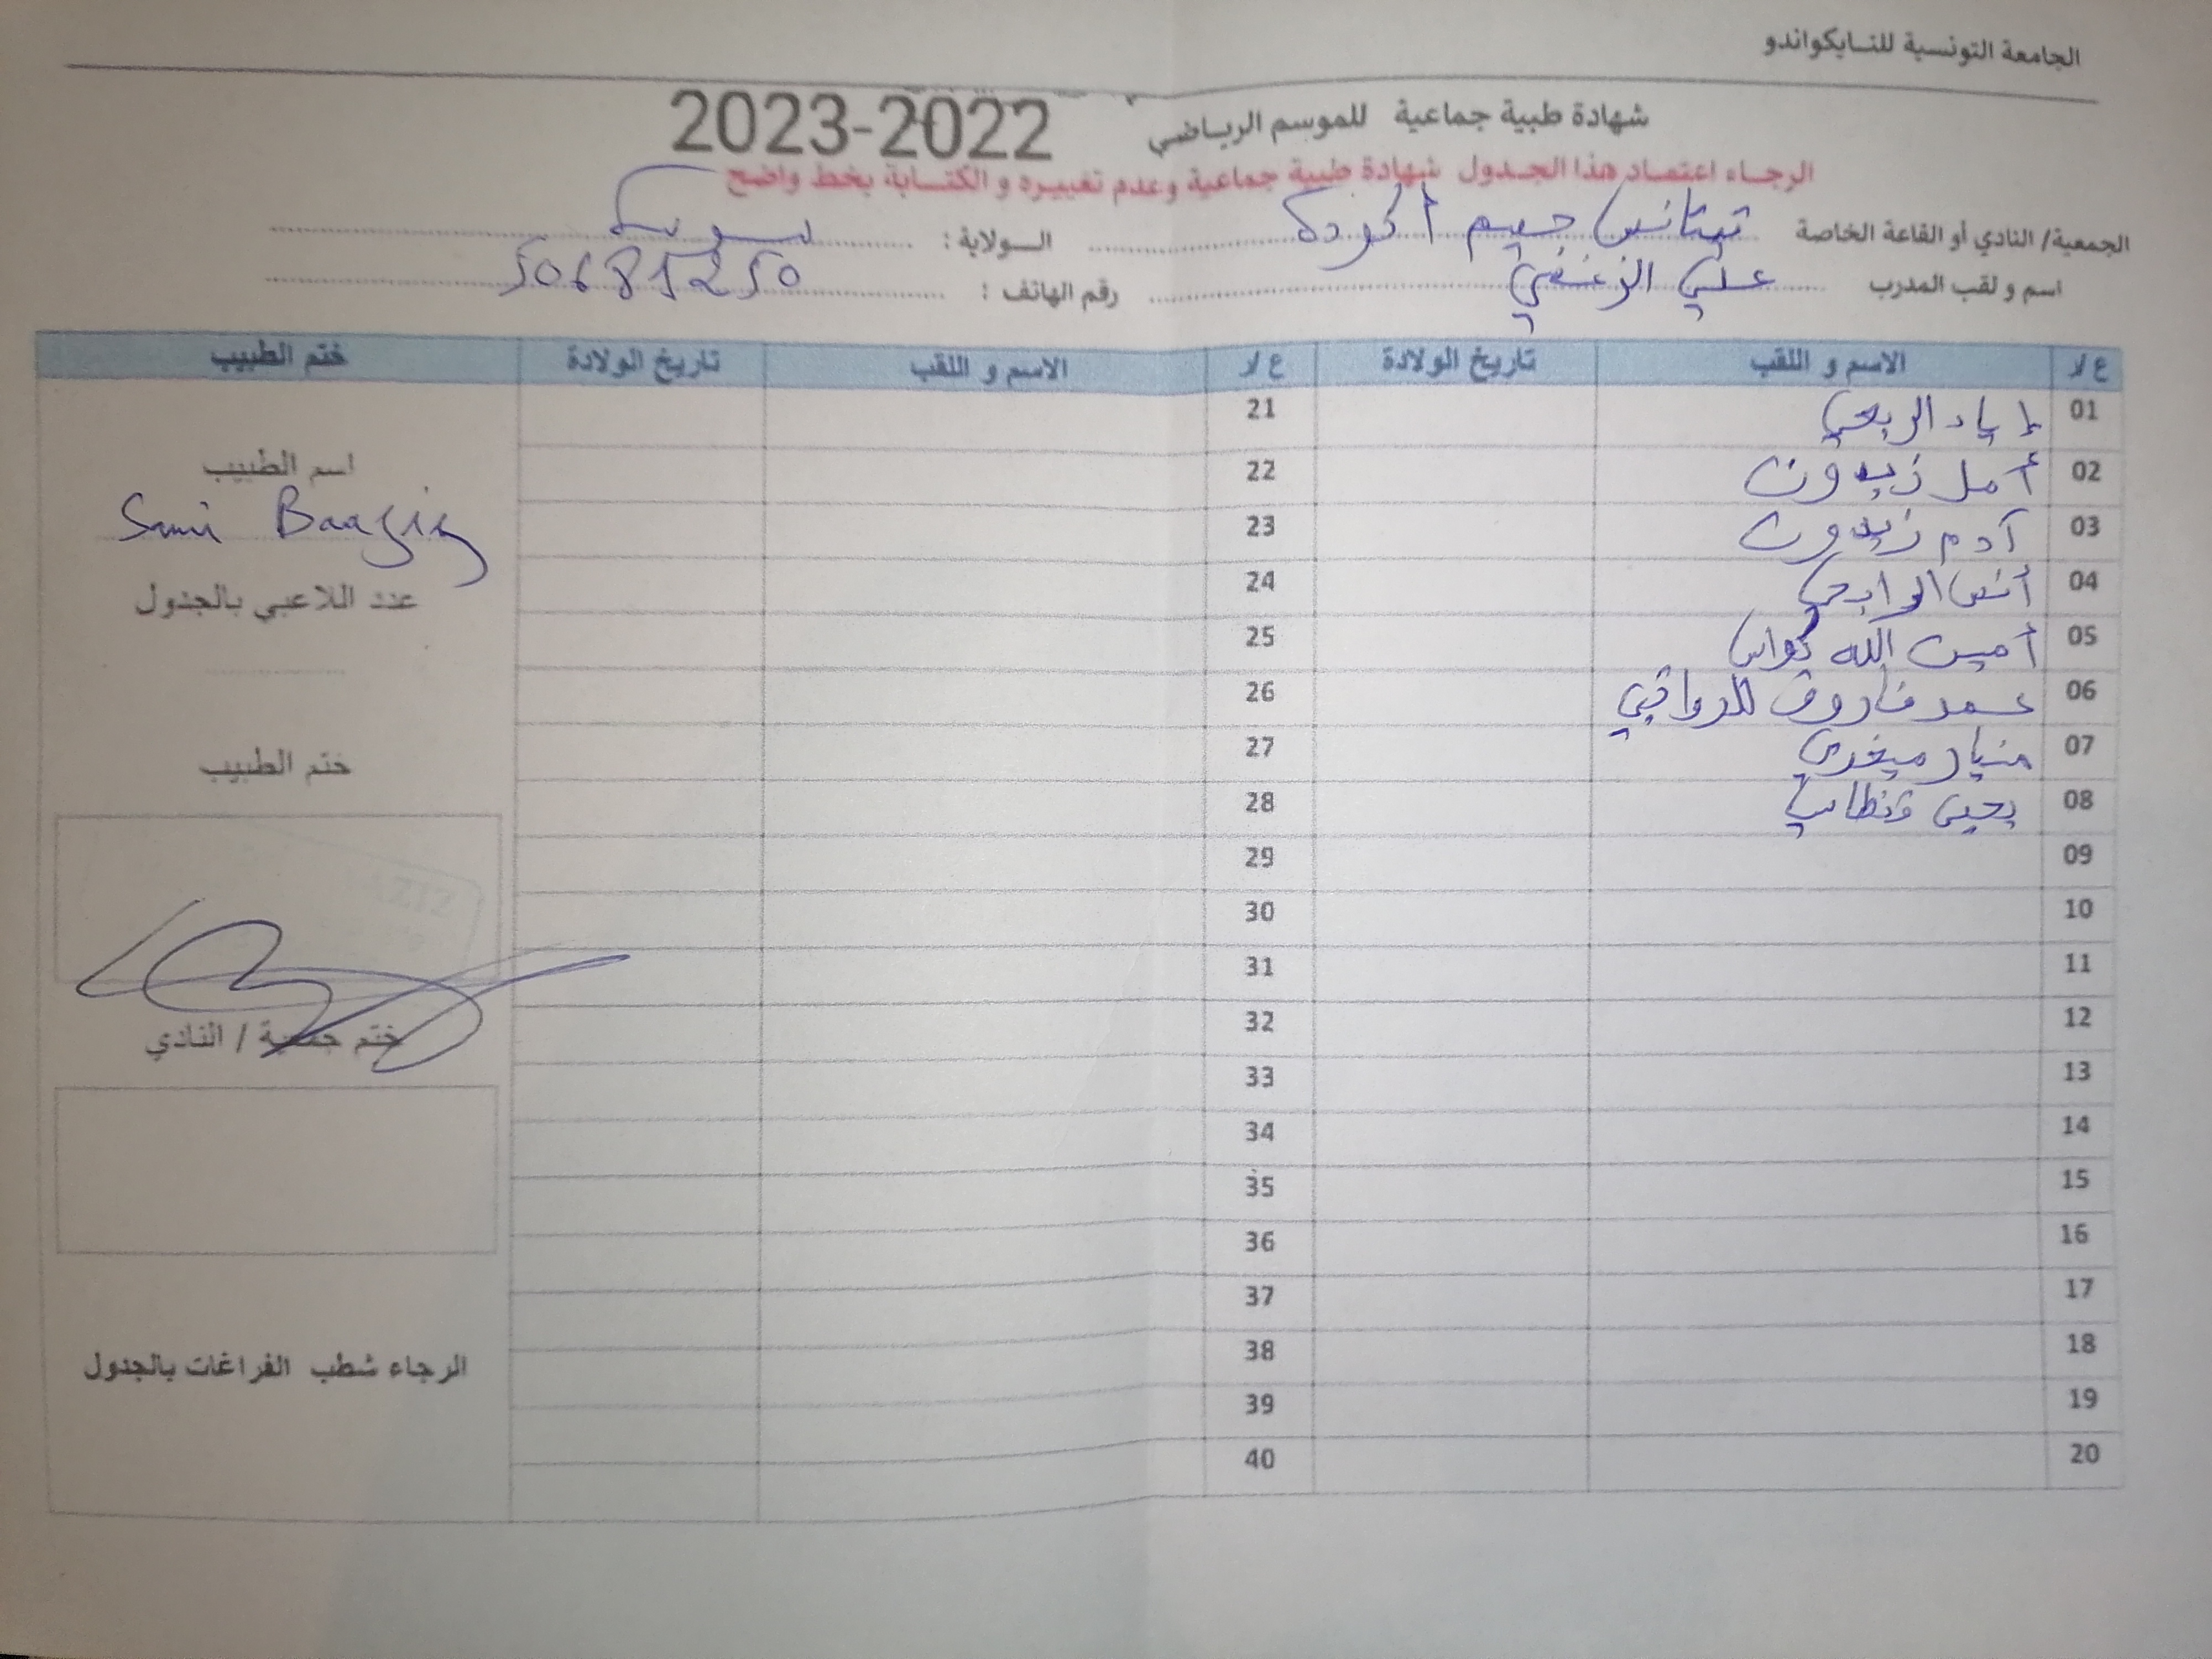 الجامعة التونسية للتايكواندو
شهادة طبية جماعية للموسم الرياضي 2022-2023
الرجاء اعتماد هذا الجدول شهادة طبية جماعية وعدم تغييره و الكتابة بخط واضح
الجمعية/ النادي أو القاعة الخاصة تيتانس جيم أكودة الولاية : سوسة
اسم و لقب المدرب علي الزغني رقم الهاتف : 50681250
ع/د الاسم و اللقب تاريخ الولادة ع/د الاسم و اللقب تاريخ الولادة ختم الطبيب
01 إياد الربعي 21
02 أمل زيدون 22
03 آدم زيدون 23
04 أنس الرابحي 24
05 أمين الله كواس 25
06 عمر فاروق الدواقي 26
07 منيار ميغري 27
08 يحيى قنطاب 28
09 29
10 30
11 31
12 32
13 33
14 34
15 35
16 36
17 37
18 38
19 39
20 40
اسم الطبيب
Sami Baaziz
عدد اللاعبي بالجدول
ختم الطبيب
AZIZ
ختم جمعية / النادي
الرجاء شطب الفراغات بالجدول